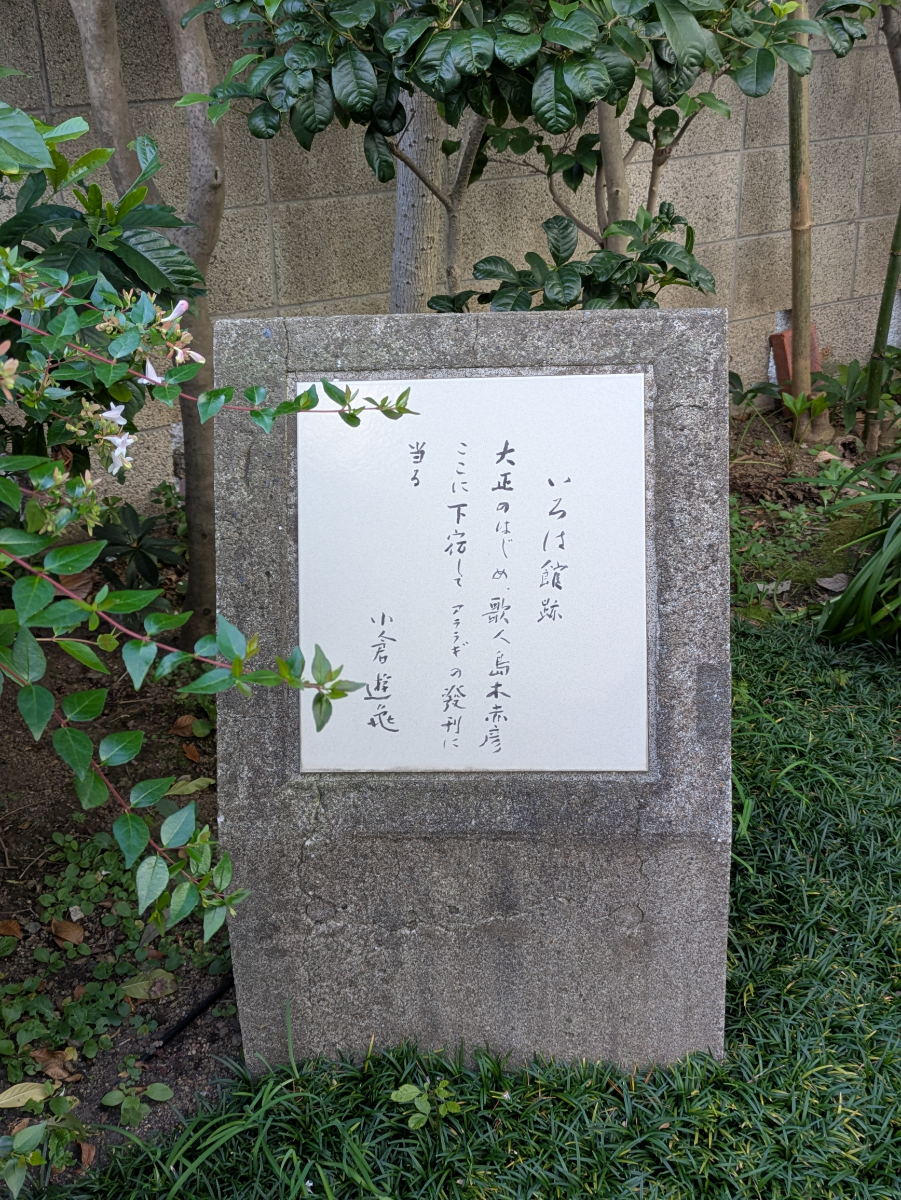 いろは館跡
大正のはじめ、歌人島木赤彦
ここに下宿して アララギの發刊に
当る
小倉遊亀